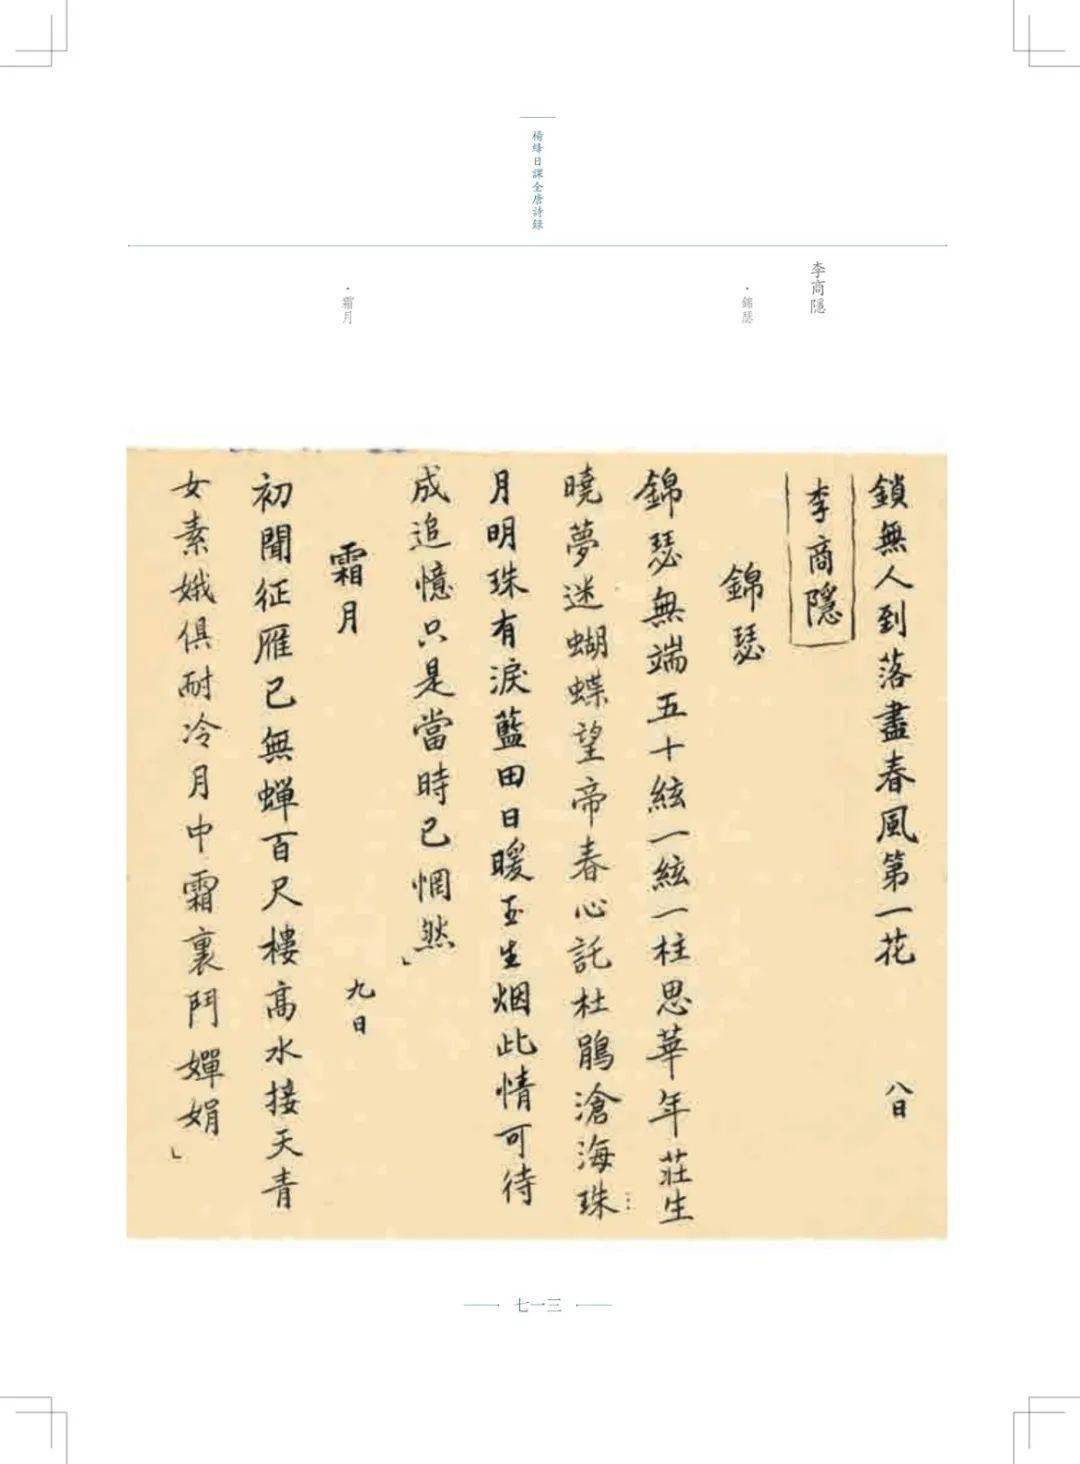 楊絳日課全唐詩錄
李商隱
·錦瑟
·霜月
鎖無人到落盡春風第一花 八日
李商隱
錦瑟
錦瑟無端五十絃一絃一柱思華年莊生
曉夢迷蝴蝶望帝春心託杜鵑滄海珠
月明珠有淚藍田日暖玉生烟此情可待
成追憶只是當時已惘然」
霜月 九日
初聞征雁已無蟬百尺樓高水接天青
女素娥俱耐冷月中霜裏鬥嬋娟」
七一三